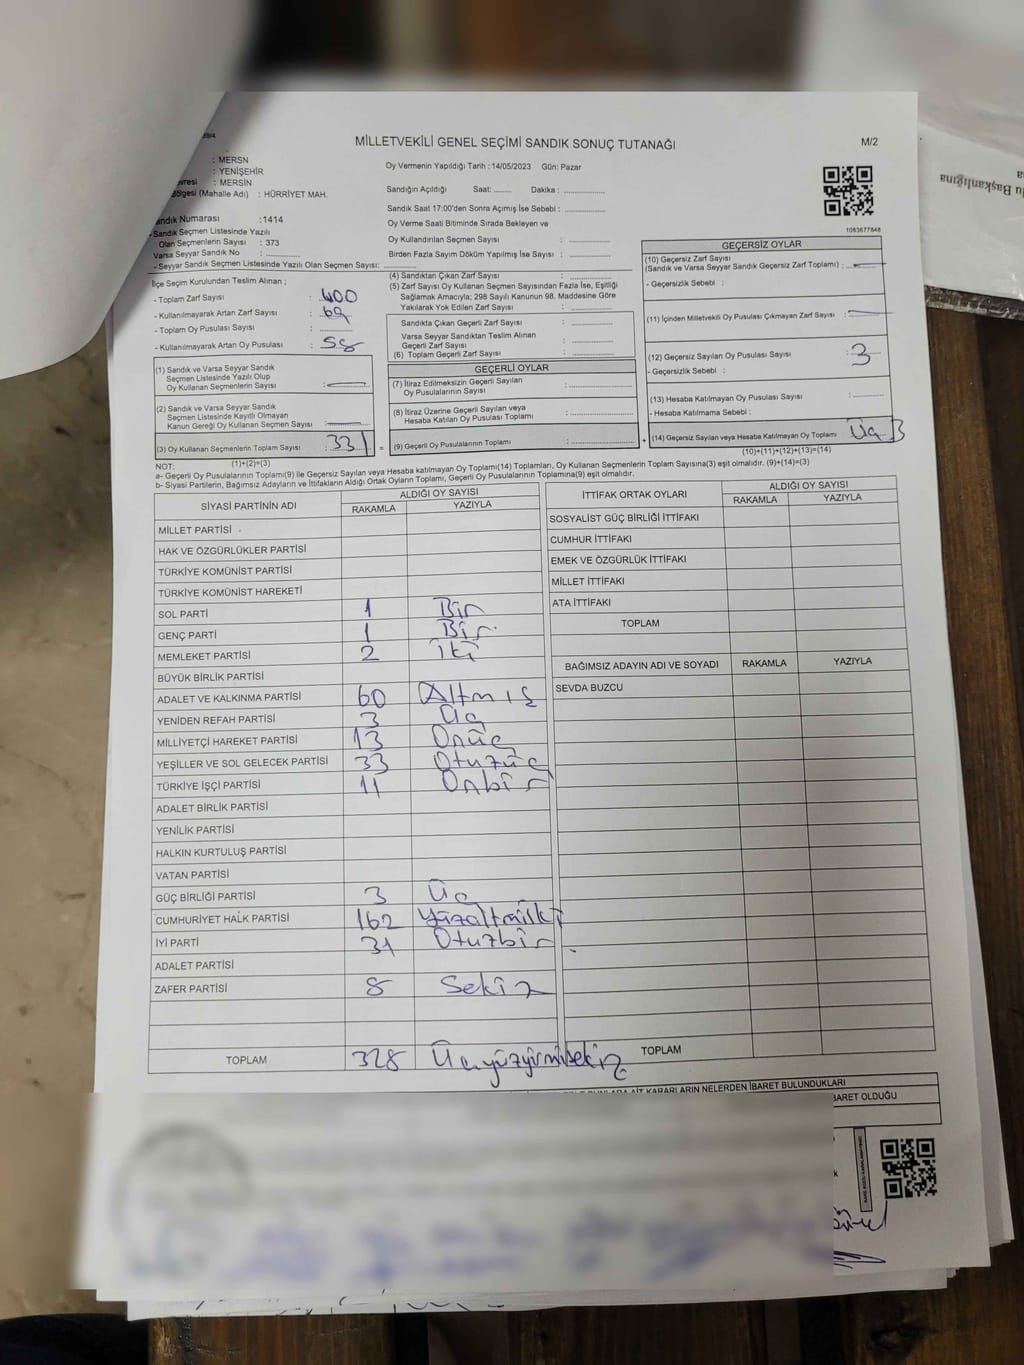 MİLLETVEKİLİ GENEL SEÇİMİ SANDIK SONUÇ TUTANAĞI
M/2
: MERSN
: YENİŞEHİR
: MERSİN
Bölgesi (Mahalle Adı) : HÜRRİYET MAH.
Sandık Numarası :1414
- Sandık Seçmen Listesinde Yazılı
Olan Seçmenlerin Sayısı : 373
Varsa Seyyar Sandık No :
- Seyyar Sandık Seçmen Listesinde Yazılı Olan Seçmen Sayısı:
Oy Vermenin Yapıldığı Tarih : 14/05/2023 Gün: Pazar
Sandığın Açıldığı Saat: Dakika :
Sandık Saat 17:00'den Sonra Açımış İse Sebebi :
Oy Verme Saati Bitiminde Sırada Bekleyen ve
Oy Kullandırılan Seçmen Sayısı :
Birden Fazla Sayım Döküm Yapılmış İse Sayısı :
1083677848
İlçe Seçim Kurulundan Teslim Alınan ;
- Toplam Zarf Sayısı : 400
- Kullanılmayarak Artan Zarf Sayısı : 69
- Toplam Oy Pusulası Sayısı :
- Kullanılmayarak Artan Oy Pusulası : 58
(1) Sandık ve Varsa Seyyar Sandık
Seçmen Listesinde Yazılı Olup
Oy Kullanan Seçmenlerin Sayısı :
(2) Sandık ve Varsa Seyyar Sandık
Seçmen Listesinde Kayıtlı Olmayan
Kanun Gereği Oy Kullanan Seçmen Sayısı :
(3) Oy Kullanan Seçmenlerin Toplam Sayısı : 331
(1)+(2)=(3)
(4) Sandıktan Çıkan Zarf Sayısı :
(5) Zarf Sayısı Oy Kullanan Seçmen Sayısından Fazla İse, Eşitliği
Sağlamak Amacıyla; 298 Sayılı Kanunun 98. Maddesine Göre
Yakılarak Yok Edilen Zarf Sayısı :
Sandıkta Çıkan Geçerli Zarf Sayısı :
Varsa Seyyar Sandıktan Teslim Alınan
Geçerli Zarf Sayısı :
(6) Toplam Geçerli Zarf Sayısı :
GEÇERLİ OYLAR
(7) İtiraz Edilmeksizin Geçerli Sayılan
Oy Pusulalarının Sayısı :
(8) İtiraz Üzerine Geçerli Sayılan veya
Hesaba Katılan Oy Pusulası Toplamı :
= (9) Geçerli Oy Pusulalarının Toplamı :
GEÇERSİZ OYLAR
(10) Geçersiz Zarf Sayısı
(Sandık ve Varsa Seyyar Sandık Geçersiz Zarf Toplamı) :
- Geçersizlik Sebebi :
(11) İçinden Milletvekili Oy Pusulası Çıkmayan Zarf Sayısı :
(12) Geçersiz Sayılan Oy Pusulası Sayısı : 3
- Geçersizlik Sebebi :
(13) Hesaba Katılmayan Oy Pusulası Sayısı :
- Hesaba Katılmama Sebebi :
+ (14) Geçersiz Sayılan veya Hesaba Katılmayan Oy Toplamı : Üç 3
(10)+(11)+(12)+(13)=(14)
NOT:
a- Geçerli Oy Pusulalarının Toplamı(9) ile Geçersiz Sayılan veya Hesaba katılmayan Oy Toplamı(14) Toplamları, Oy Kullanan Seçmenlerin Toplam Sayısına(3) eşit olmalıdır. (9)+(14)=(3)
b- Siyasi Partilerin, Bağımsız Adayların ve İttifakların Aldığı Ortak Oyların Toplamı, Geçerli Oy Pusulalarının Toplamına(9) eşit olmalıdır.
SİYASİ PARTİNİN ADI ALDIĞI OY SAYISI
RAKAMLA YAZIYLA
MİLLET PARTİSİ
HAK VE ÖZGÜRLÜKLER PARTİSİ
TÜRKİYE KOMÜNİST PARTİSİ
TÜRKİYE KOMÜNİST HAREKETİ
SOL PARTİ 1 Bir
GENÇ PARTİ 1 Bir
MEMLEKET PARTİSİ 2 İki
BÜYÜK BİRLİK PARTİSİ
ADALET VE KALKINMA PARTİSİ 60 Altmış
YENİDEN REFAH PARTİSİ 3 Üç
MİLLİYETÇİ HAREKET PARTİSİ 13 Onüç
YEŞİLLER VE SOL GELECEK PARTİSİ 33 Otuzüç
TÜRKİYE İŞÇİ PARTİSİ 11 Onbir
ADALET BİRLİK PARTİSİ
YENİLİK PARTİSİ
HALKIN KURTULUŞ PARTİSİ
VATAN PARTİSİ
GÜÇ BİRLİĞİ PARTİSİ 3 Üç
CUMHURİYET HALK PARTİSİ 162 Yüzaltmişki
İYİ PARTİ 31 Otuzbir
ADALET PARTİSİ
ZAFER PARTİSİ 8 Sekiz
TOPLAM 328 Üçyüzyirmisekiz
İTTİFAK ORTAK OYLARI ALDIĞI OY SAYISI
RAKAMLA YAZIYLA
SOSYALİST GÜÇ BİRLİĞİ İTTİFAKI
CUMHUR İTTİFAKI
EMEK VE ÖZGÜRLÜK İTTİFAKI
MİLLET İTTİFAKI
ATA İTTİFAKI
TOPLAM
BAĞIMSIZ ADAYIN ADI VE SOYADI RAKAMLA YAZIYLA
SEVDA BUZCU
TOPLAM
AİT KARARLARIN NELERDEN İBARET BULUNDUKLARI
BARET OLDUĞU